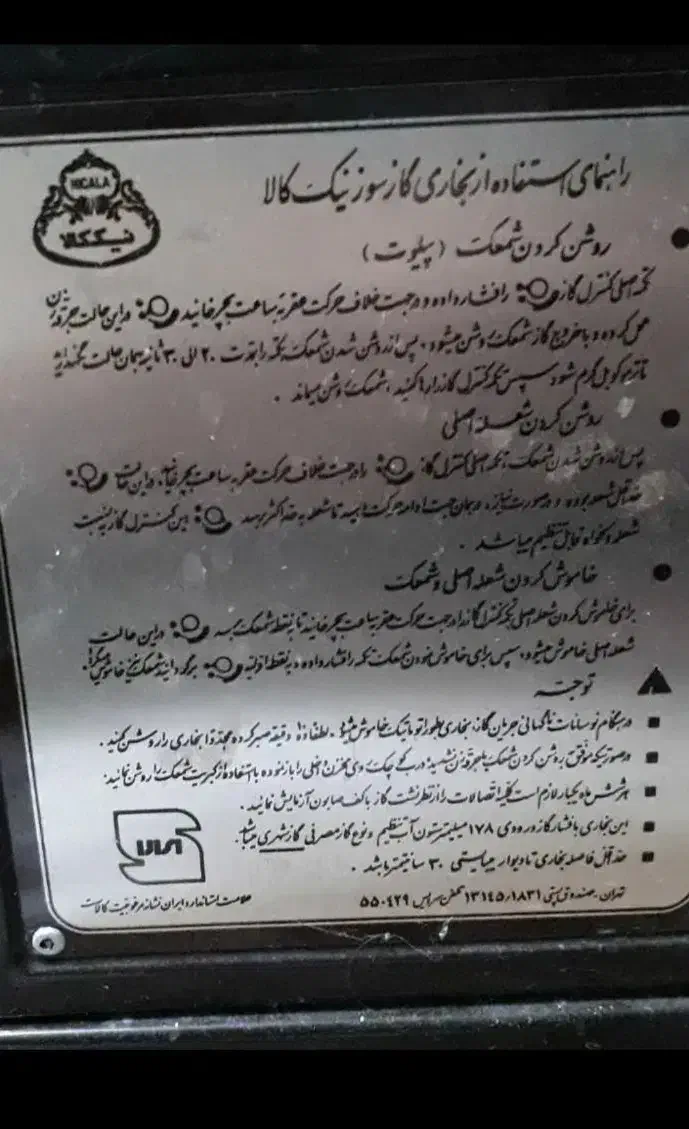 NICALA
نیک کالا
راهنمای استفاده از بخاری گازسوز نیک کالا
روشن کردن شمعک (پیلوت)
تکه اصلی کنترل گاز را فشار داده و در جهت خلاف حرکت عقربه ساعت بچرخانید در این حالت جرقه زن
عمل کرده و با خروج گاز شمعک روشن میشود. پس از روشن شدن شمعک تکه را بمدت ۲۰ الی ۳۰ ثانیه بهمان حالت نگهدارید
تا ترموکوپل گرم شود سپس تکه کنترل گاز را رها کنید، شمعک روشن میماند.
روشن کردن شعله اصلی
پس از روشن شدن شمعک، تکه اصلی کنترل گاز را در جهت خلاف حرکت عقربه ساعت بچرخانید، در این حالت
حداقل شعله بوده و در صورت نیاز، در همان جهت ادامه حرکت دهید تا شعله به حد اکثر برسد این کنترل گاز نسبت
شعله دلخواه قابل تنظیم میباشد.
خاموش کردن شعله اصلی و شمعک
برای خاموش کردن شعله اصلی تکه کنترل گاز را در جهت حرکت عقربه ساعت بچرخانید تا نقطه شمعک برسد در این حالت
شعله اصلی خاموش میشود، سپس برای خاموش نمودن شمعک تکه را فشار داده و به نقطه اولیه برگردانید شمعک نیز خاموش میگردد.
توجه
در هنگام نوسانات ناگهانی جریان گاز، بخاری بطور اتوماتیک خاموش میشود. لطفاً ۵ دقیقه صبر کرده و مجدداً بخاری را روشن کنید.
در صورتیکه موفق به روشن کردن شمعک با جرقه زن نشدید درب کوچک روی مخزن داخلی را باز نموده با استفاده از کبریت شمعک را روشن نمائید.
هر شش ماه یکبار لازم است کلیه اتصالات را از نظر نشت گاز با کف صابون آزمایش نمائید.
این بخاری با فشار گاز ورودی ۱۷۸ میلیمتر ستون آب تنظیم و نوع گاز مصرفی گاز شهری میباشد.
حداقل فاصله بخاری تا دیوار میبایستی ۳۰ سانتیمتر باشد.
تهران. صندوق پستی ۱۳۱۴۵/۱۸۳۱ تلفن سرویس ۵۵۰۴۲۹
علامت استاندارد ایران نشانه مرغوبیت کالاست